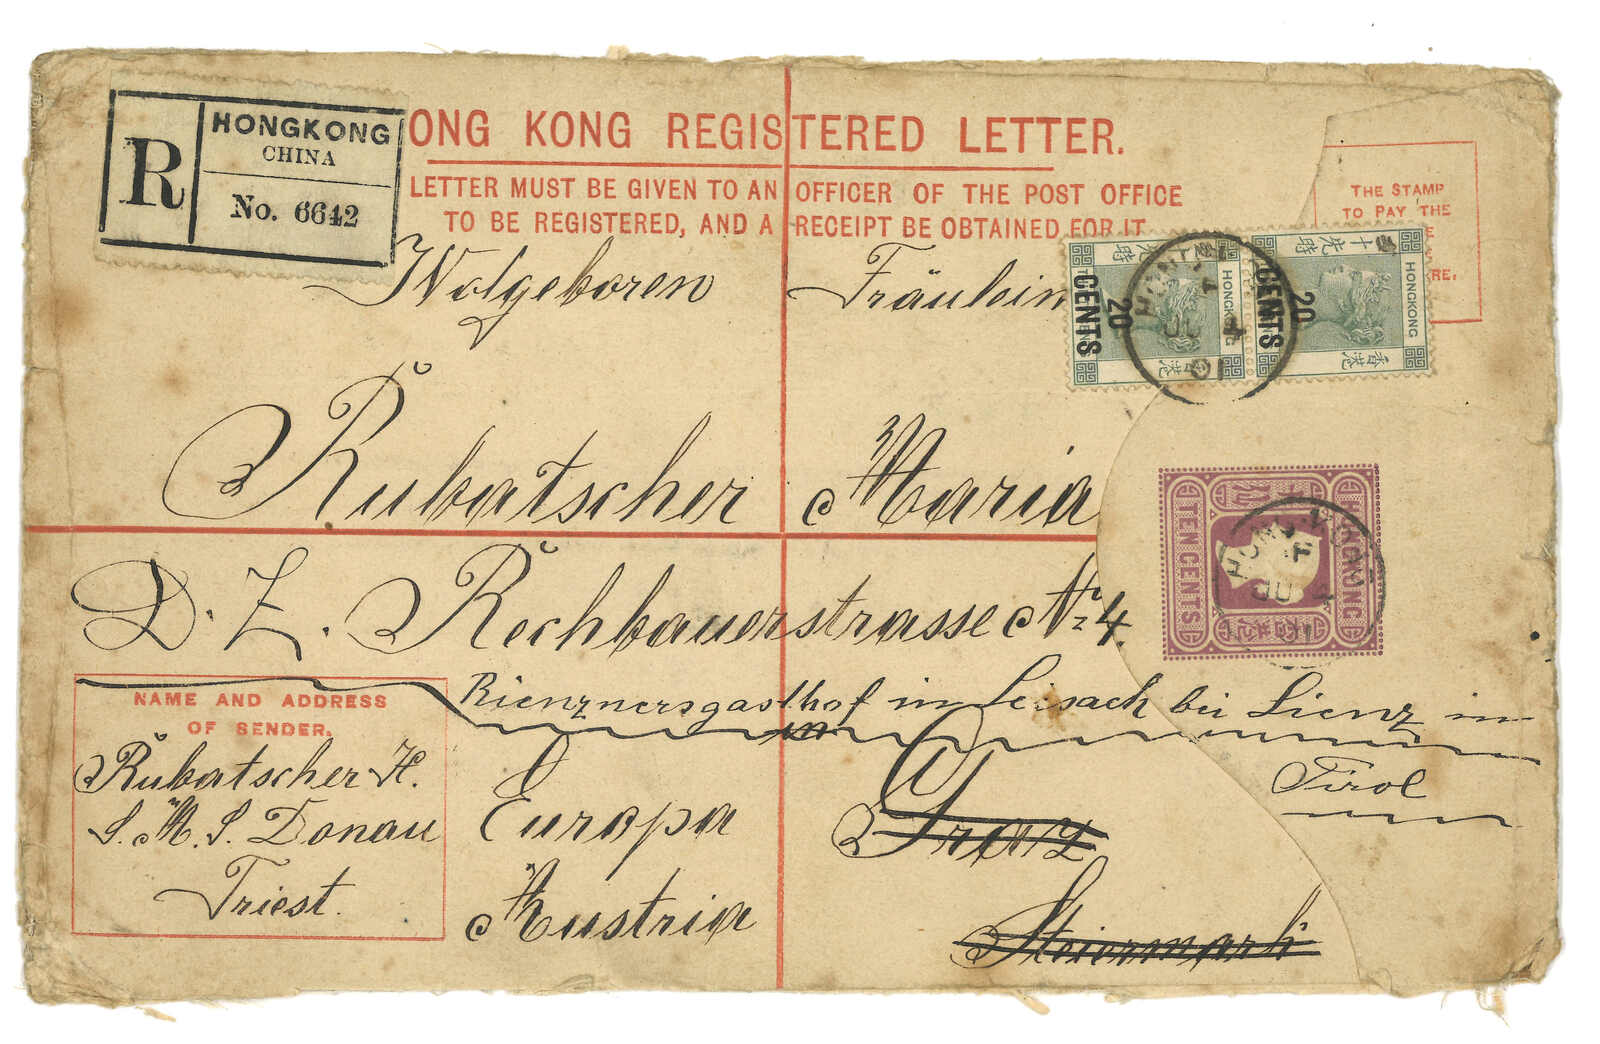 R
HONGKONG
CHINA
No. 6642
ONG KONG REGISTERED LETTER.
LETTER MUST BE GIVEN TO AN OFFICER OF THE POST OFFICE
TO BE REGISTERED, AND A RECEIPT BE OBTAINED FOR IT
THE STAMP
TO PAY THE
RE.
20
CENTS
HONGKONG
香港
20
CENTS
HONGKONG
香港
HONG KONG
TEN CENTS
Wolgeboren Fräulein
Rubatscher Maria
D. Z. Rechbauerstrasse Nr 4.
Rienznersgasthof in Leisach bei Lienz in
Tirol
Europa
Graz
Austria
Steiermark
NAME AND ADDRESS
OF SENDER.
Rubatscher H.
S. M. S. Donau
Triest.